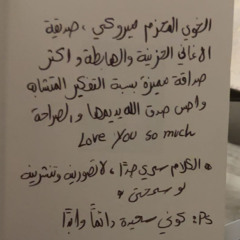 الخوي المحترم مبروكي، صديقة
الاغاني الحزينة والهابطة و اكثر
صداقة مميزة بسبة التفكير المتشابه
واحن صدق الله يديمها والصراحة
Love you so much
* الكلام سري جدًا، لا تصورينه وتنشرينه
لو سمحتي *
Ps: كوني سعيدة دائمًا وأبدًا